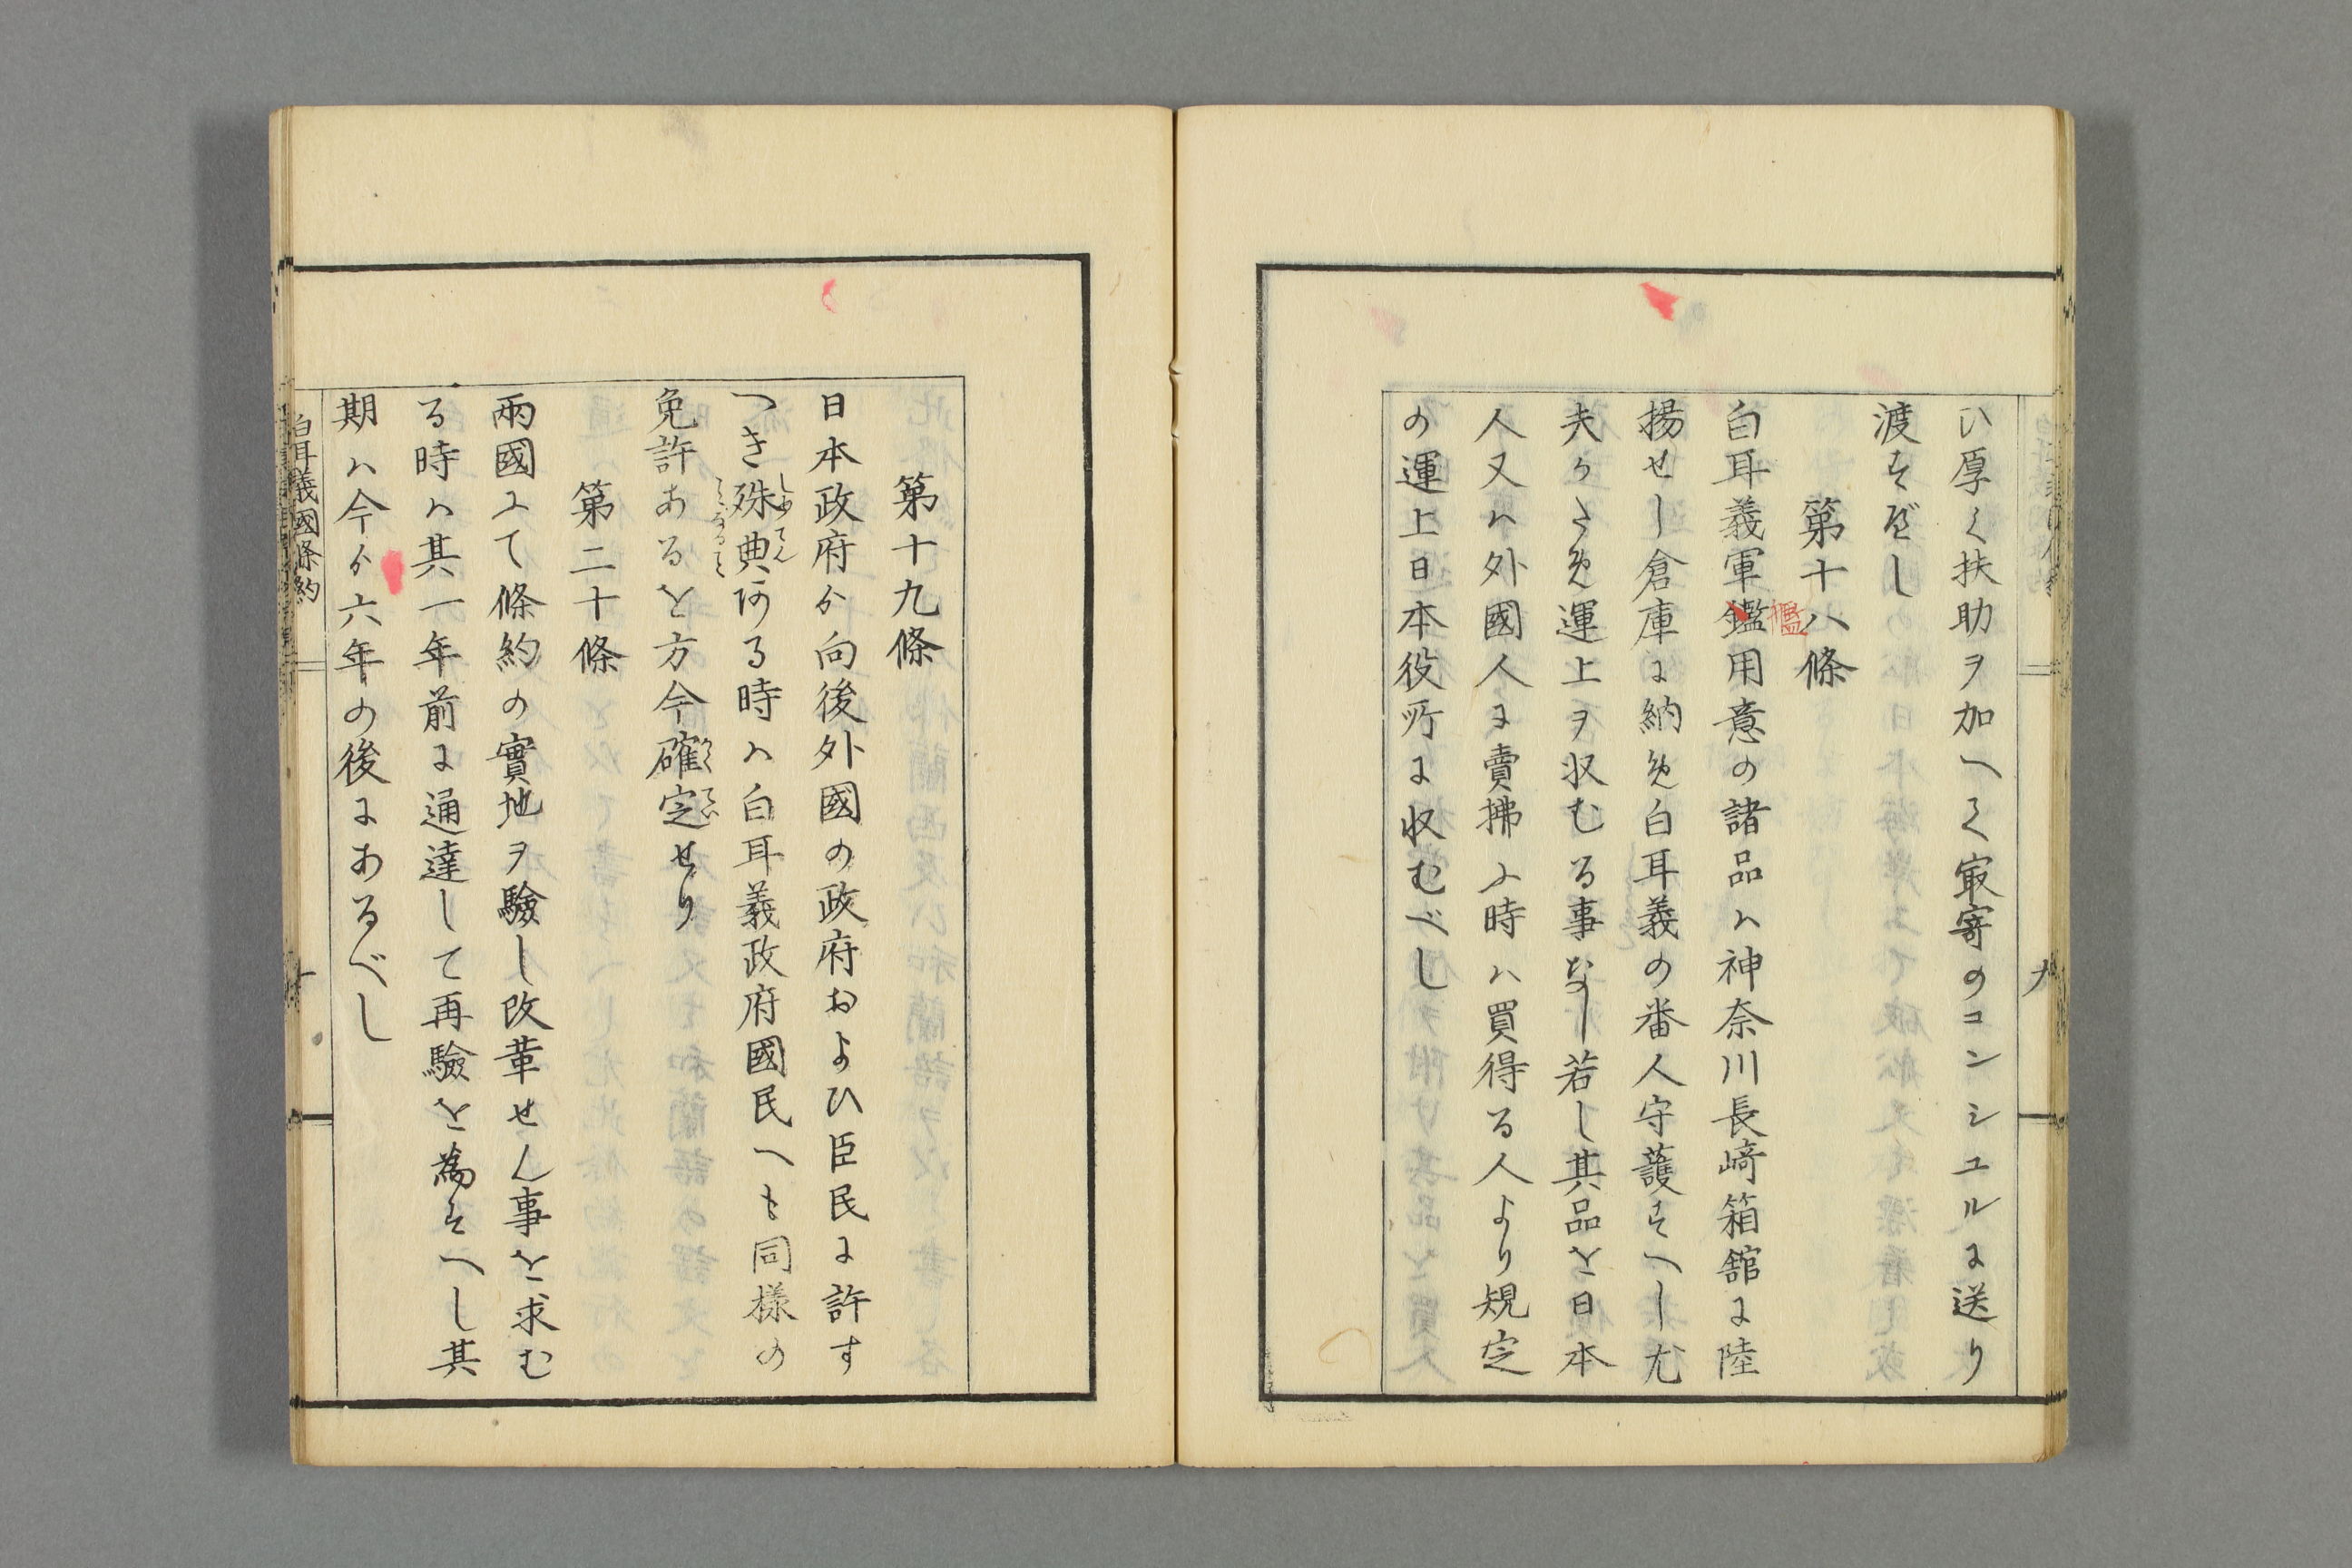 ひ厚く扶助ヲ加へて㝡寄のコンシユルに送り
渡すべし
第十八條
白耳義軍鑑用意の諸品ハ神奈川長﨑箱舘に陸
艦
揚せし倉庫に納め白耳義の番人守護すへし尤
夫か為め運上ヲ収むる事なし若し其品を日本
人又ハ外國人に賣拂ふ時ハ買得る人より規定
の運上日本役所に収むべし
九
第十九條
日本政府ゟ向後外國の政府およひ臣民に許す
へき殊典ある時ハ白耳義政府國民へも同様の
しゆてん
免許あるを方今確定せり
かくてい
第二十條
兩國にて條約の實地ヲ驗し改革せん事を求む
る時ハ其一年前に通達して再驗を為すへし其
期ハ今ゟ六年の後にあるべし
白耳義國條約
十